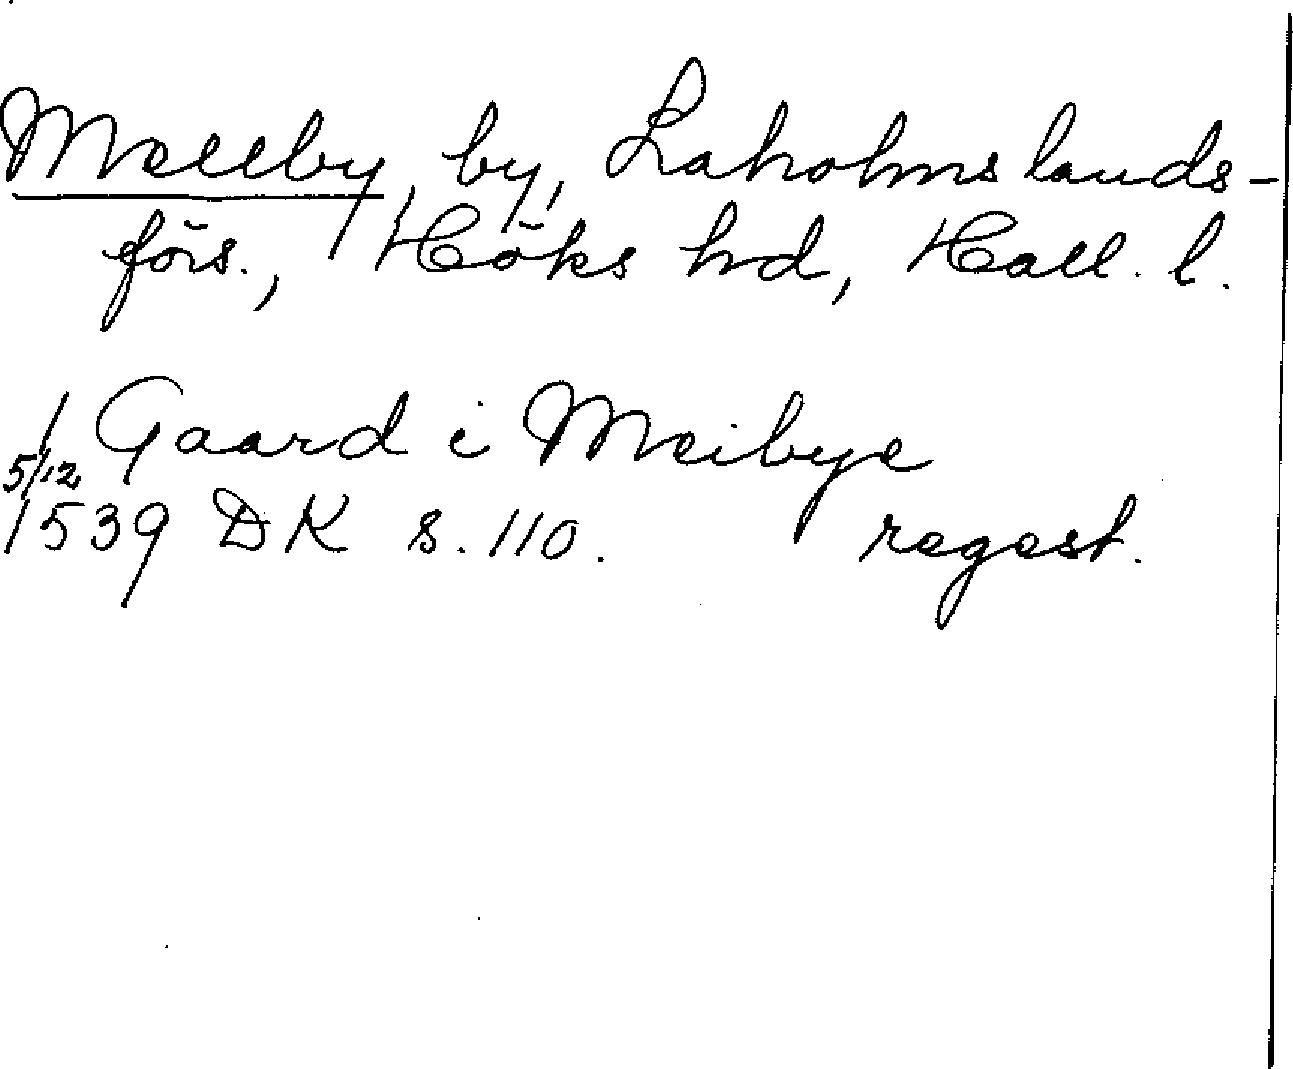 Mellby, by, Laholms lands-
förs., Höks hd, Hall. l.
1 Gaard i Meibye
5/12
1539 DK s. 110. regest.